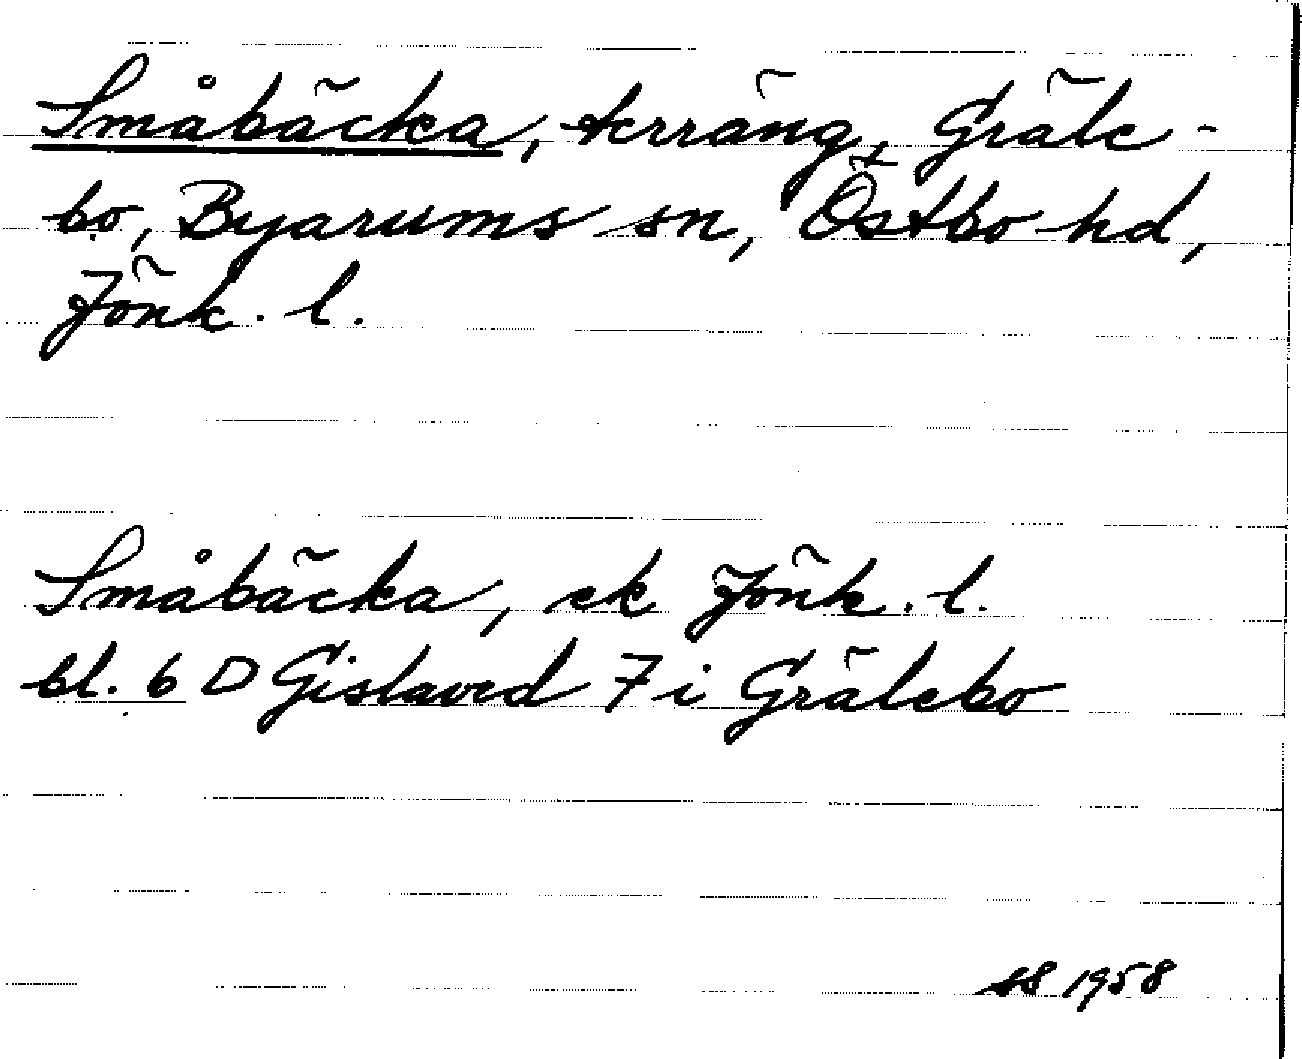 Småbäcka, terräng, Gräle-
bo, Byarums sn, Östbo hd,
Jönk. l.
Småbäcka, ek Jönk. l.
bl. 6 D Gislaved 7 i Grälebo
SS 1958